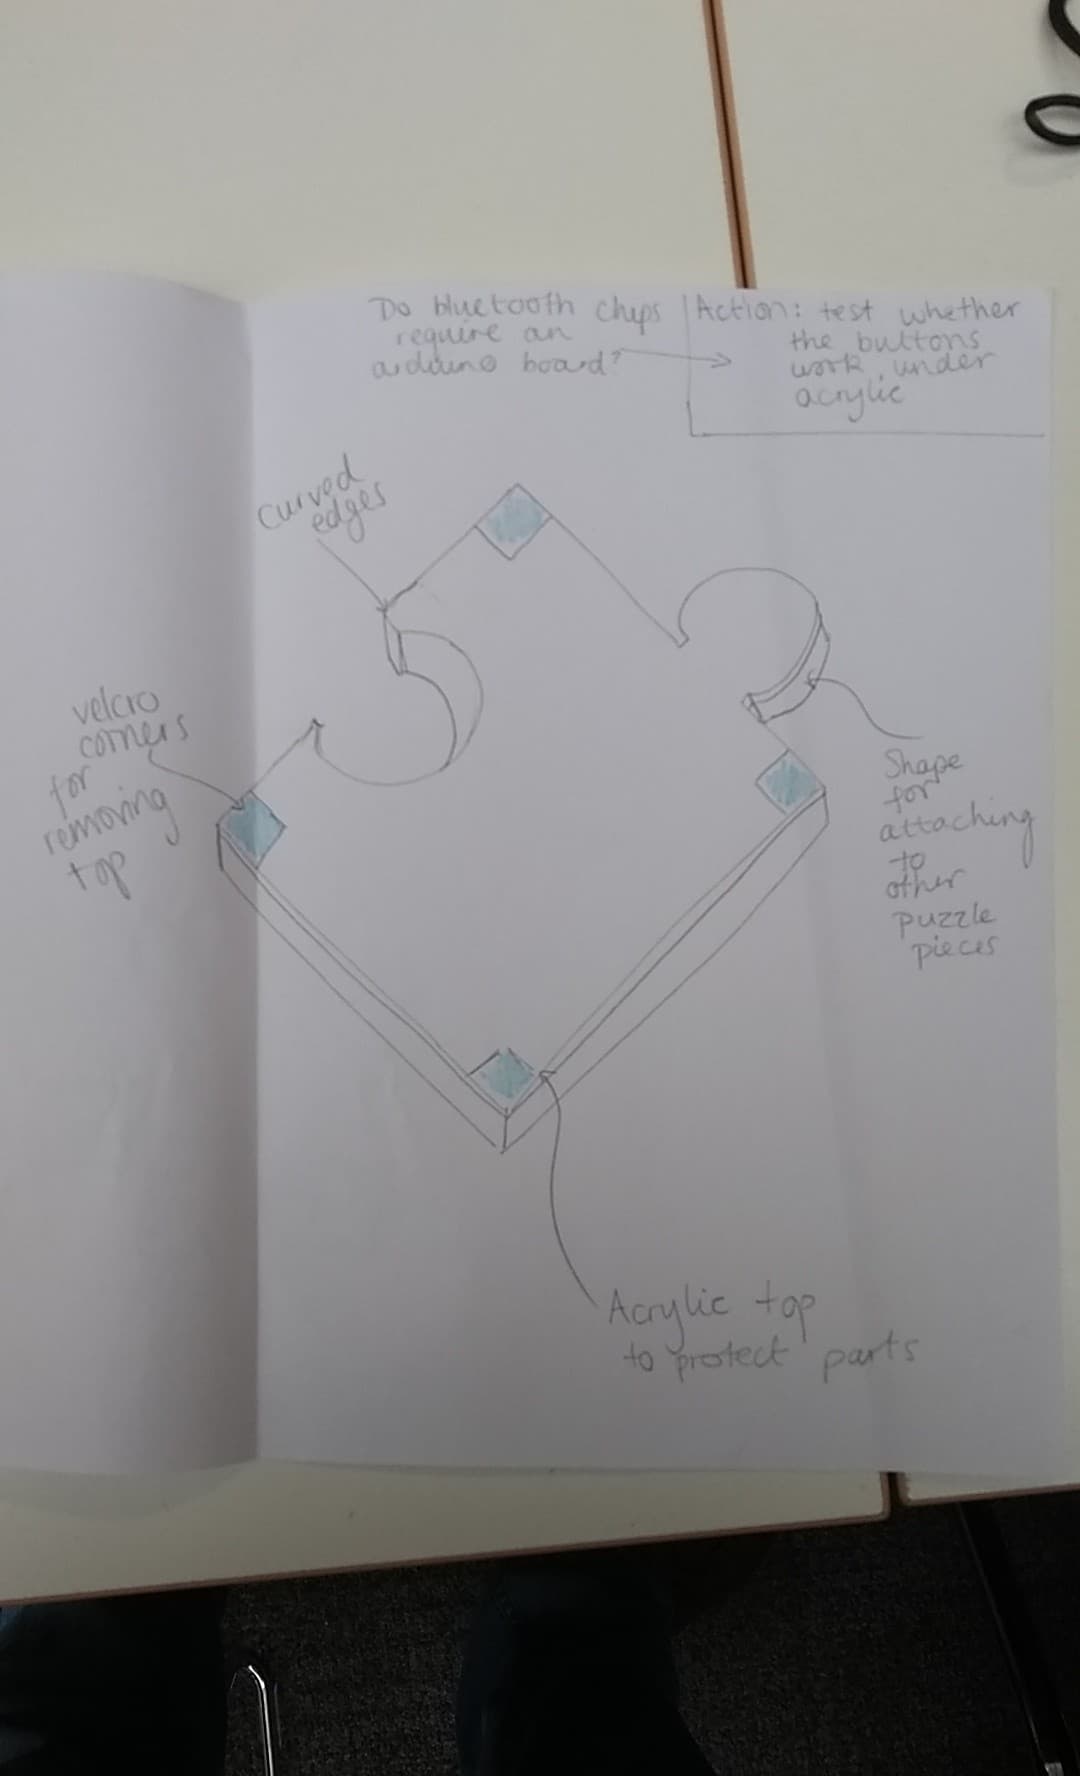 Do bluetooth chips
require an
arduino board?
Action: test whether
the buttons
work under
acrylic
curved
edges
velcro
corners
for
removing
top
Shape
for
attaching
to
other
puzzle
pieces
Acrylic top
to protect parts